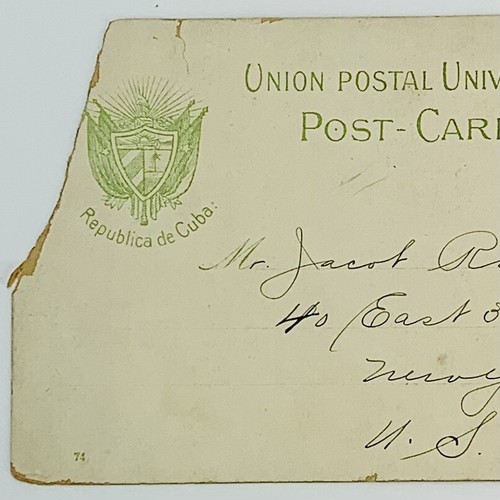 UNION POSTAL UNIV
POST-CAR
Republica de Cuba.
Mr. Jacob R
40 East 3
Newy
U. S.
74